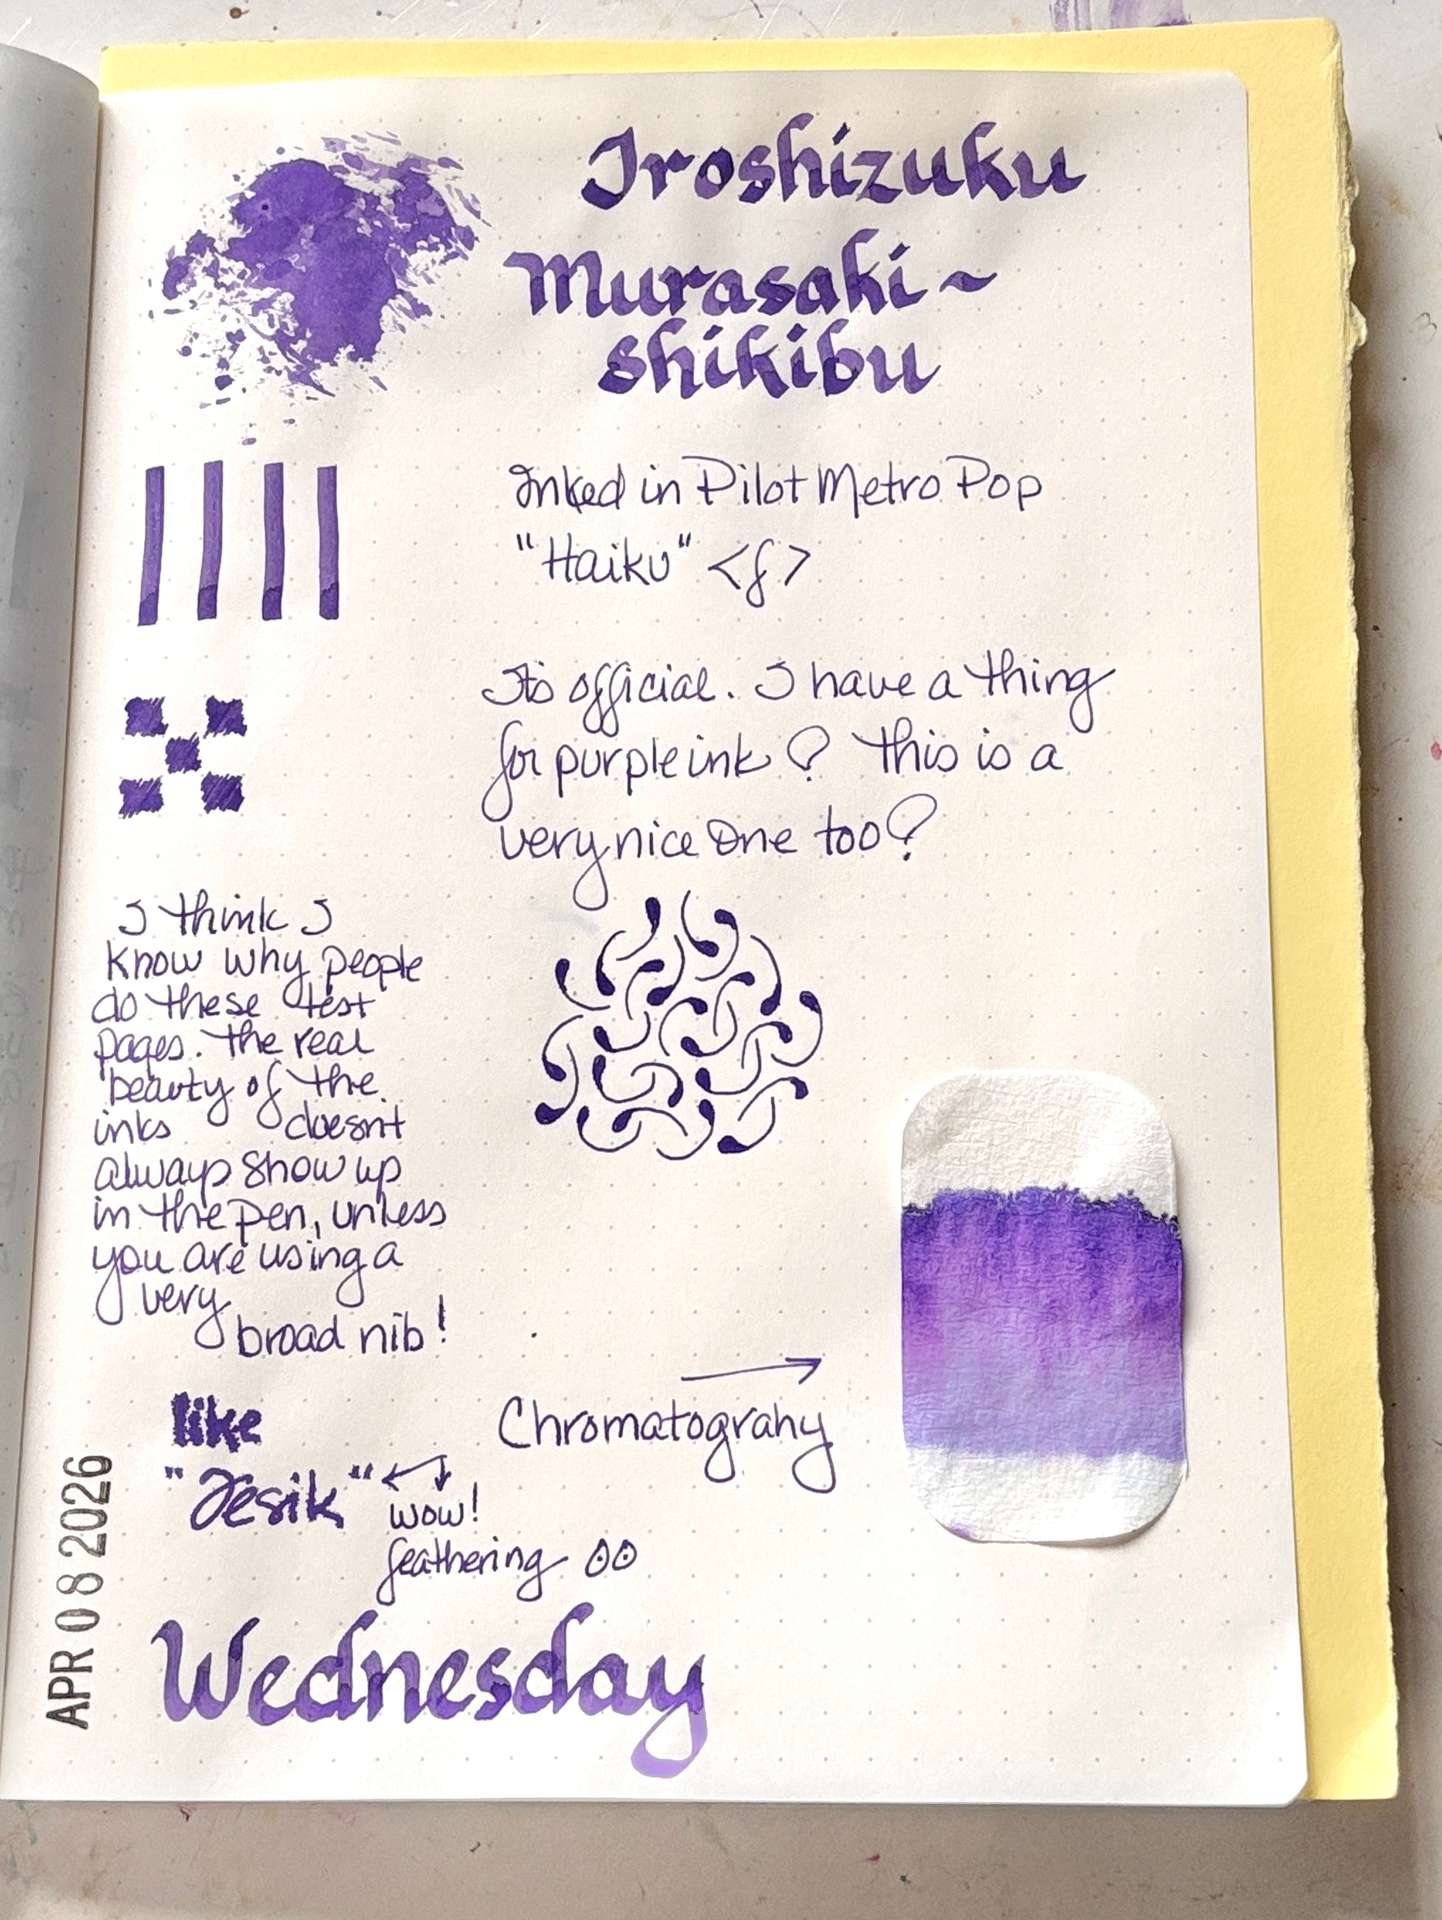 Iroshizuku
Murasaki~
shikibu
Inked in Pilot Metro Pop
"Haiku" <f>
Its official. I have a thing
for purple ink? This is a
very nice one too?
I think I
know why people
do these test
pages. The real
beauty of the
inks doesnt
always show up
in the pen, unless
you are using a
very
broad nib!
like
"Jesik"
wow!
feathering
Chromatograhy
APR 08 2026
Wednesday